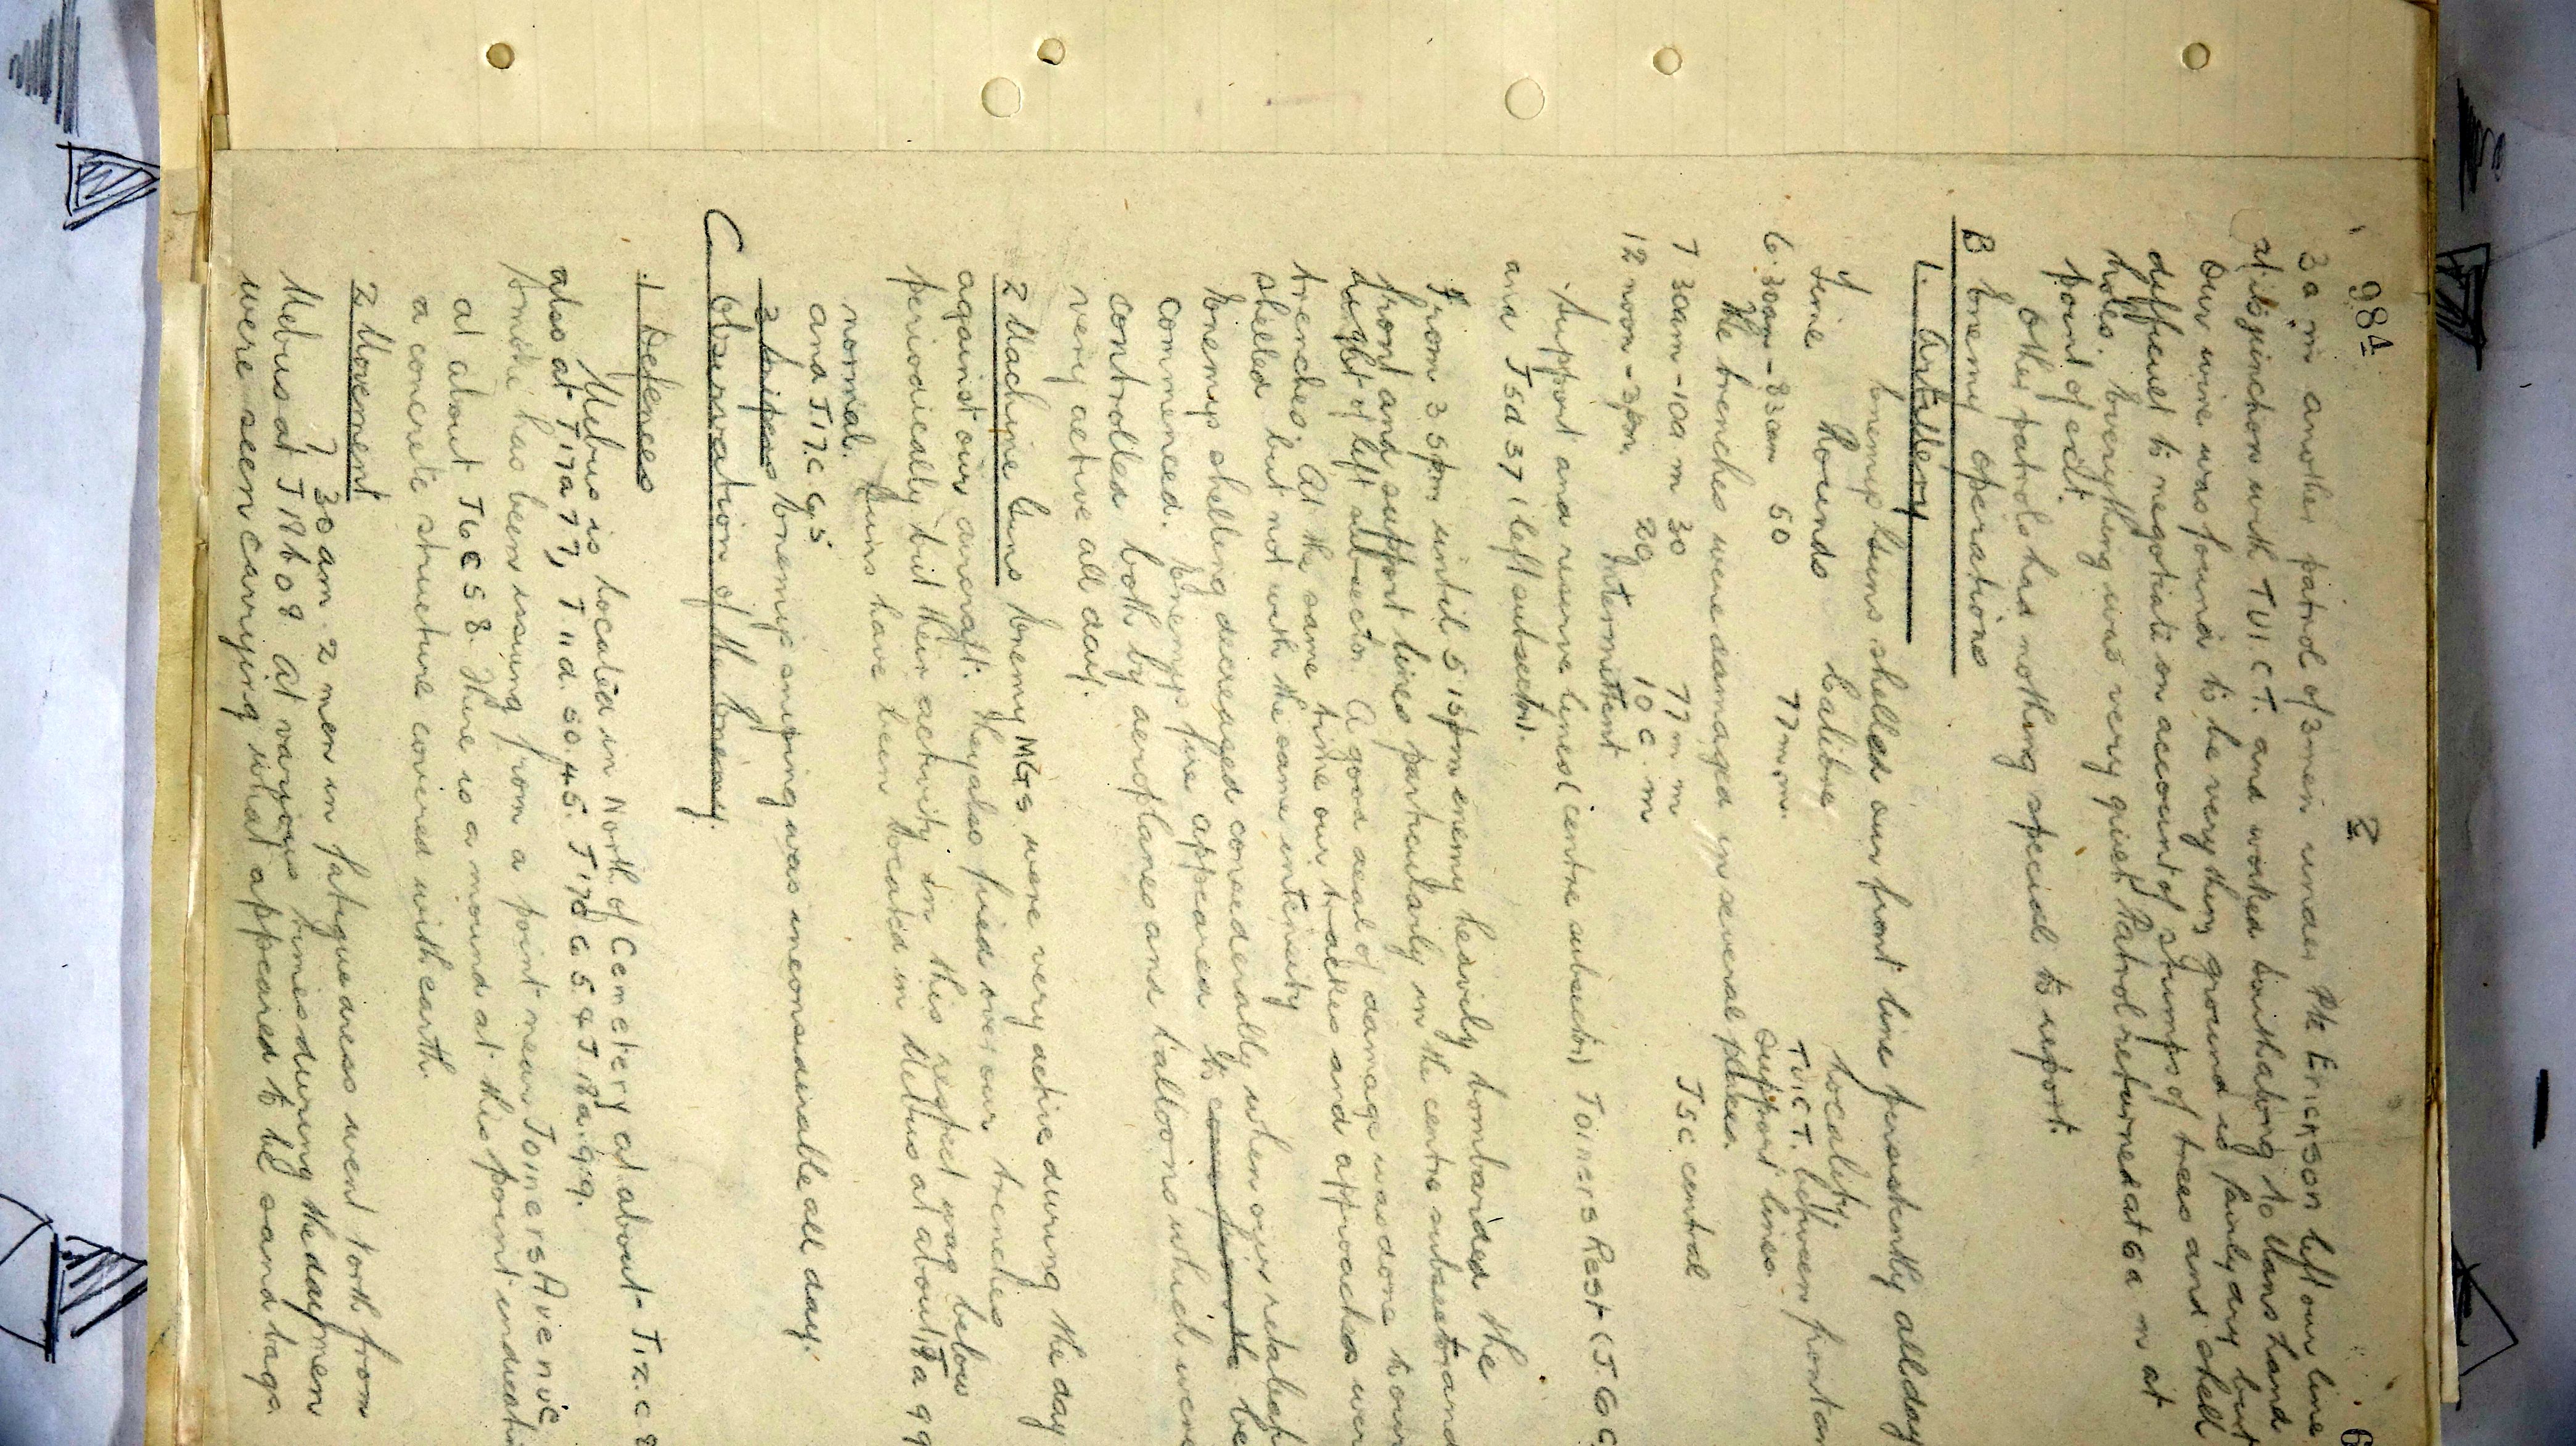 984 2 6
3 a m another patrol of 3 men under Pte Erickson left our line
at its junction with TUICT. and worked bouthalong to Mans hand
Our wire was found to be very thin, ground is fairly dry but
difficult to negotiate on account of stumps of trees and shell
holes. Everything was very quiet Patrol returned at 6 a m at
point of exit.
Other patrols had nothing special to report.
B Enemy operations
1. Artillery
Enemy Guns shelled our front line persistently all day
Time Rounds Calibre Locality
6. 30am - 830am 50 77 m.m. TUICT. between front an
support lines.
The trenches were damaged in several places.
7 30am - 10a m 30 77 m m T5c central
12 noon - 3pm. 20 10 c. m
Intermittent
Support and reserve lines (centre subsector) Joiners Rest (J 6 c
and J5d 37 (left subsector).
From 3 5pm until 5 15pm enemy heavily bombarded the
front and support lines particularly in the centre subsector and
right of left subsector. A good deal of damage was done to our
trenches. At the same time our tracks and approaches wer
shelled but not with the same intensity
Enemy's shelling decreased considerably when our retaliat
commenced. Enemy's fire appeared to come from the be
controlled both by aeroplanes and balloons which were
very active all day.
2 Machine Guns Enemy MGs were very active during the day
against our aircraft. They also fired over our trenches
periodically but their activity in this respect was below
normal. Guns have been located in Mebus at about T a 99
and J.17.c. 6,5
3 Snipers Enemy's sniping was inconsiderable all day.
C Observation of the Enemy.
1 Defences
Mebus is located in North of Cemetery at about J 12. c 8
also at J 17 a 77, J 11 d. 50.45. J 17d 65.4 J 18 a. 9.9.
Smoke has been issuing from a point near Joiners Avenue
at about J 6 c 5 8. There is a mound at this point indicatin
a concrete structure covered with earth.
2 Movement
7 30 am. 2 men in fatigue dress went forth from
Mebus at J 18 b 0 9. At various times during the day men
were seen carrying what appeared to be sand bags